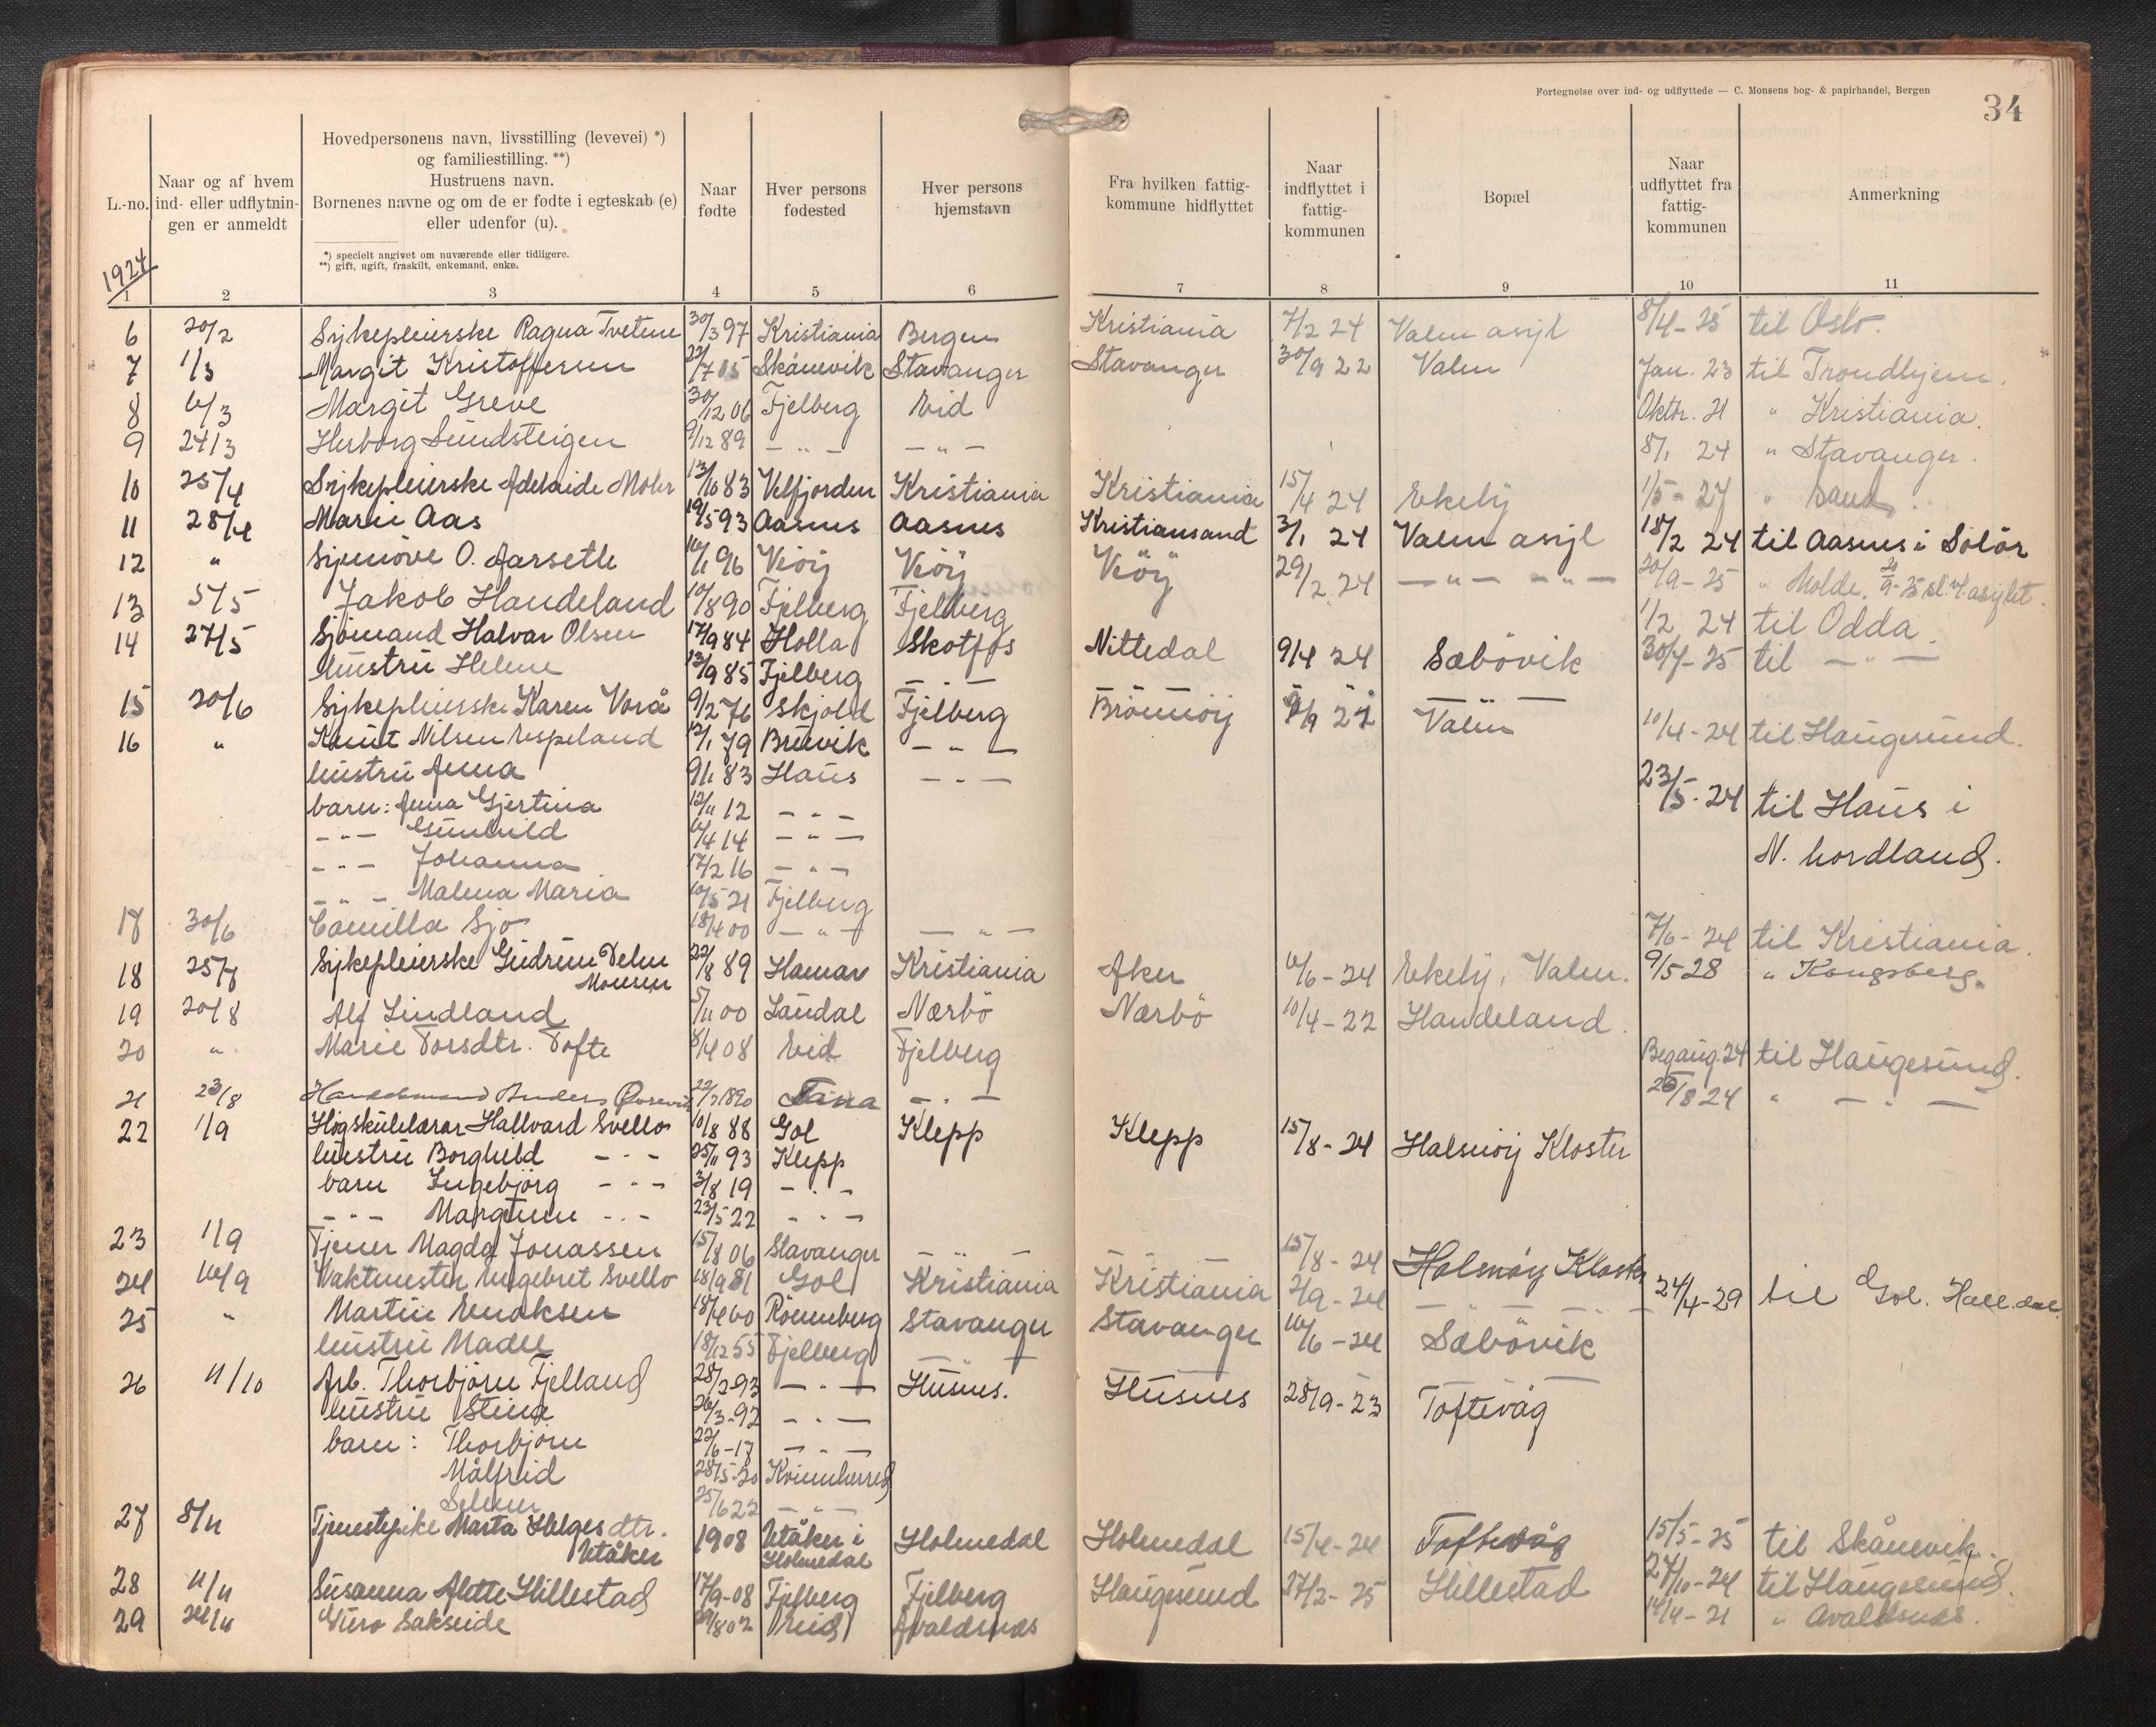 Fortegnelse over ind- og udflyttede — C. Monsens bog- & papirhandel, Bergen
34
L.-no.
Naar og af hvem
ind- eller udflytnin-
gen er anmeldt
Hovedpersonens navn, livsstilling (levevei) *)
og familiestilling. **)
Hustruens navn.
Børnenes navne og om de er fødte i egteskab (e)
eller udenfor (u).
*) specielt angivet om nuværende eller tidligere.
**) gift, ugift, fraskilt, enkemand, enke.
Naar
fødte
Hver persons
fødested
Hver persons
hjemstavn
Fra hvilken fattig-
kommune hidflyttet
Naar
indflyttet i
fattig-
kommunen
Bopæl
Naar
udflyttet fra
fattig-
kommunen
Anmerkning
1924
1 2 3 4 5 6 7 8 9 10 11
6 20/2 Sykepleierske Ragna Tvetene 30/3 97 Kristiania Bergen Kristiania 7/2 24 Valen asyl 8/4-25 til Oslo.
7 1/3 Margit Kristoffersen 22/7 05 Skånevik Stavanger Stavanger 30/9 22 Valen Jan. 23 til Trondhjem.
8 6/3 Margit Greve 30/12 06 Fjelberg Eid Oktbr. 21 " Kristiania.
9 24/3 Herborg Sundsteigen 9/12 89 — " — — " — 8/1 24 " Stavanger.
10 25/4 Sykepleierske Adelaide Mohr 13/10 83 Velfjorden Kristiania Kristiania 15/4 24 Ekely 1/5-27 " Sand.
11 28/4 Marie Aas 19/5 93 Aasnes Aasnes Kristiansand 3/1 24 Valen asyl 18/2 24 til Aasnes i Solör
12 " Synnöve O. Aarseth 96 Veöy Veöy Veöy 29/2 24 — " — — " — 20/9-25 " Molde.
13 5/5 Jakob Handeland 10/8 90 Fjelberg Fjelberg 1/2 24 til Odda.
14 27/5 Sjömand Halvar Olsen 17/9 84 Holla Skotfos Nittedal 9/4 24 Sæbövik 30/4-25 til — " —
hustru Helene 13/9 85 Fjelberg — " —
15 20/6 Sykepleierske Karen Vorå 9/2 76 Skjold Fjelberg Brönnöy Valen 10/4-24 til Haugesund.
16 " Knut Nilsen Espeland 12/1 79 Bruvik — " —
hustru Anna 9/1 83 Haus — " — 23/5-24 til Haus i
barn: Anna Gjertina 12/11 12 — " —
— " — Gunhild 6/4 14 — " — N. hordland.
— " — Johanna 17/2 16 — " —
— " — Malena Maria 10/5 21 Fjelberg
17 30/6 Camilla Sjo 18/4 00 — " — — " — 7/6-24 til Kristiania.
18 25/7 Sykepleierske Gudrun Delen 22/8 89 Hamar Kristiania Aker 6/6-24 Ekely, Valen. 9/5 28 " Kongsberg.
Monsen
19 20/8 Alf Lindland 5/11 00 Laudal Nærbö Nærbö 10/4-22 Handeland.
20 " Marie Torsdtr. Tofte 8/4 08 Eid Fjelberg Beg aug. 24 til Haugesund.
21 23/8 Handelsmand Anders 22/7 1890 — " — 26/8 24 " — " —
22 1/9 Högskulelærar Hallvard Svello 10/8 88 Gol Klepp Klepp 15/8-24 Halsnöy Kloster
hustru Borghild — " — 25/11 93 Klepp
barn Ingebjörg — " — 3/8 19 — " —
— " — Margunn — " — 23/5 22 — " —
23 1/9 Tjener Magda Jonassen 15/8 06 Stavanger — " — 15/8-24 Halsnøy Kloster
24 10/9 Vaktmester Engebret Svello 18/9 81 Gol Kristiania Kristiania 2/9-24 — " — 24/4-29 til Gol. Hall.dal
25 " Martin Eriksen 18/4 60 Rönneberg Stavanger Stavanger 10/6-24 Sæbövik
hustru Madel 18/12 55 Fjelberg
26 11/10 Arb. Thorbjörn Fjelland 28/2-93 — " — Husnes. Husnes 28/9-23 Toftevåg
hustru Stina 26/3-92 — " —
barn: Thorbjörn 22/6-17 — " —
Målfrid 28/5-20 Kvinnherred
25/6 22 — " —
27 8/11 Tjenestepike Marta Helgesdtr. 1908 Utåker i Holmedal Holmedal 15/4-24 Toftevåg 15/5-25 til Skånevik.
Utåker Holmedal
28 11/11 Susanna Alette Hillestad 17/9-08 Fjelberg Fjelberg Haugesund 27/2-25 Hillestad 27/10-24 til Haugesund.
29 24/11 Guro Sakseide 29/8 02 Eid Avaldsnes 14/4-21 " Avaldsnes.